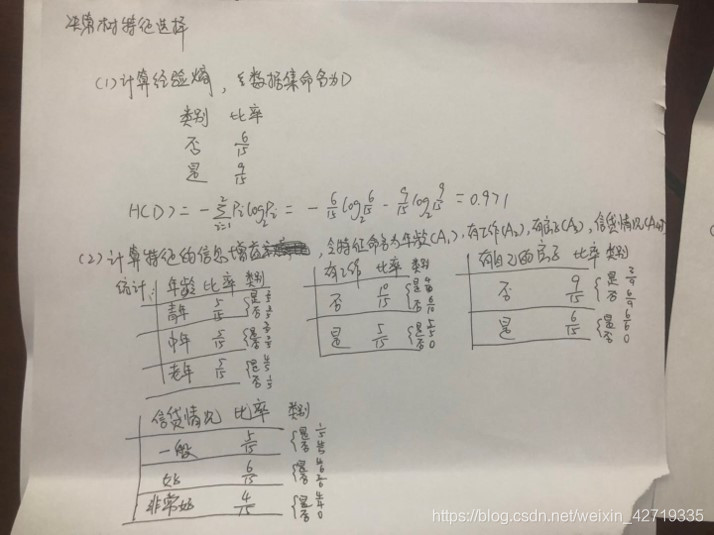 决策树特征选择
(1) 计算经验熵，令数据集命名为D
类别 比率
否 6/15
是 9/15
H(D) = -∑_{i=1}^{2} P_i log_2 P_i = - 6/15 log_2 6/15 - 9/15 log_2 9/15 = 0.971
(2) 计算特征的信息增益，令特征命名为年龄(A1), 有工作(A2), 有房子(A3), 信贷情况(A4)
统计：
年龄 比率 类别
青年 5/15 是 否
中年 5/15 是 否
老年 5/15 是 4/5 否 1/5
有工作 比率 类别
否 10/15 是 否 6/10
是 5/15 是 5/5 否 0
有自己的房子 比率 类别
否 9/15 是 3/9 否 6/9
是 6/15 是 6/6 否 0
信贷情况 比率 类别
一般 5/15 是 1/5 否 4/5
好 6/15 是 4/6 否 2/6
非常好 4/15 是 4/4 否 0
https://blog.csdn.net/weixin_42719335